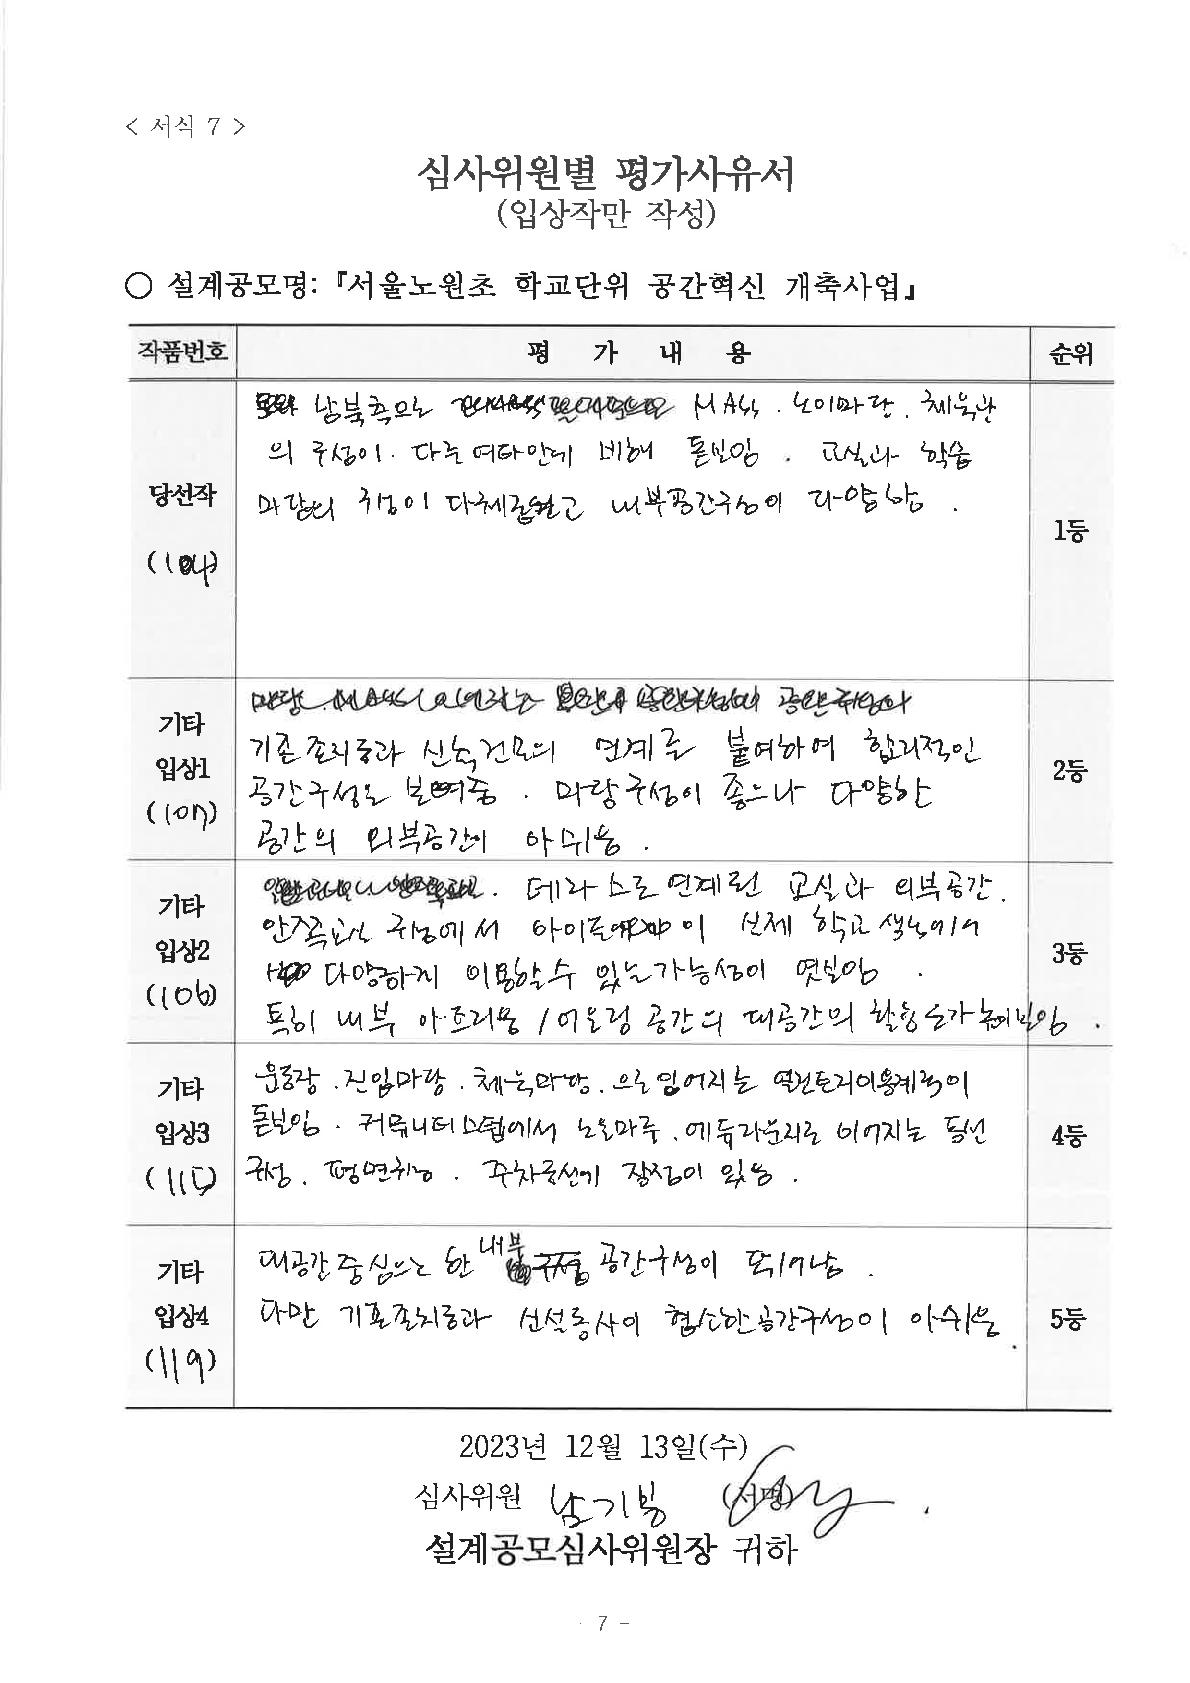 < 서식 7 >
심사위원별 평가사유서
(입상작만 작성)
○ 설계공모명: 『서울노원초 학교단위 공간혁신 개축사업』
작품번호 평 가 내 용 순위
당선작
(104)
남북측으로 MASS. 노이마당. 체육관
의 구성이. 다른 여타안에 비해 돋보임. 교실과 학습
마당의 구성이 다채롭고 내부공간구성이 다양함.
1등
기타
입상1
(107)
기존 존치동과 신축건물의 연계를 붙여하여 합리적인
공간구성을 보여줌. 마당구성이 좋으나 다양한
공간의 외부공간이 아쉬움.
2등
기타
입상2
(106)
테라스로 연계된 교실과 외부공간.
안쪽 구성에서 아이들이 실제 학교생활에서
다양하게 이용할 수 있는 가능성이 엿보임.
특히 내부 아뜨리움/어울림 공간의 대공간의 활용도가 돋보임.
3등
기타
입상3
(115)
운동장. 진입마당. 체육마당. 으로 이어지는 열린토지이용계획이
돋보임. 커뮤니티스텝에서 노을마루. 에듀라운지로 이어지는 동선
구성. 평면취능. 주차동선이 장점이 있음.
4등
기타
입상4
(119)
대공간 중심으로 한 내부 공간구성이 뛰어남.
다만 기존존치동과 신설동사이 협소한 공간구성이 아쉬움.
5등
2023년 12월 13일(수)
심사위원 남기봉 (서명)
설계공모심사위원장 귀하
- 7 -